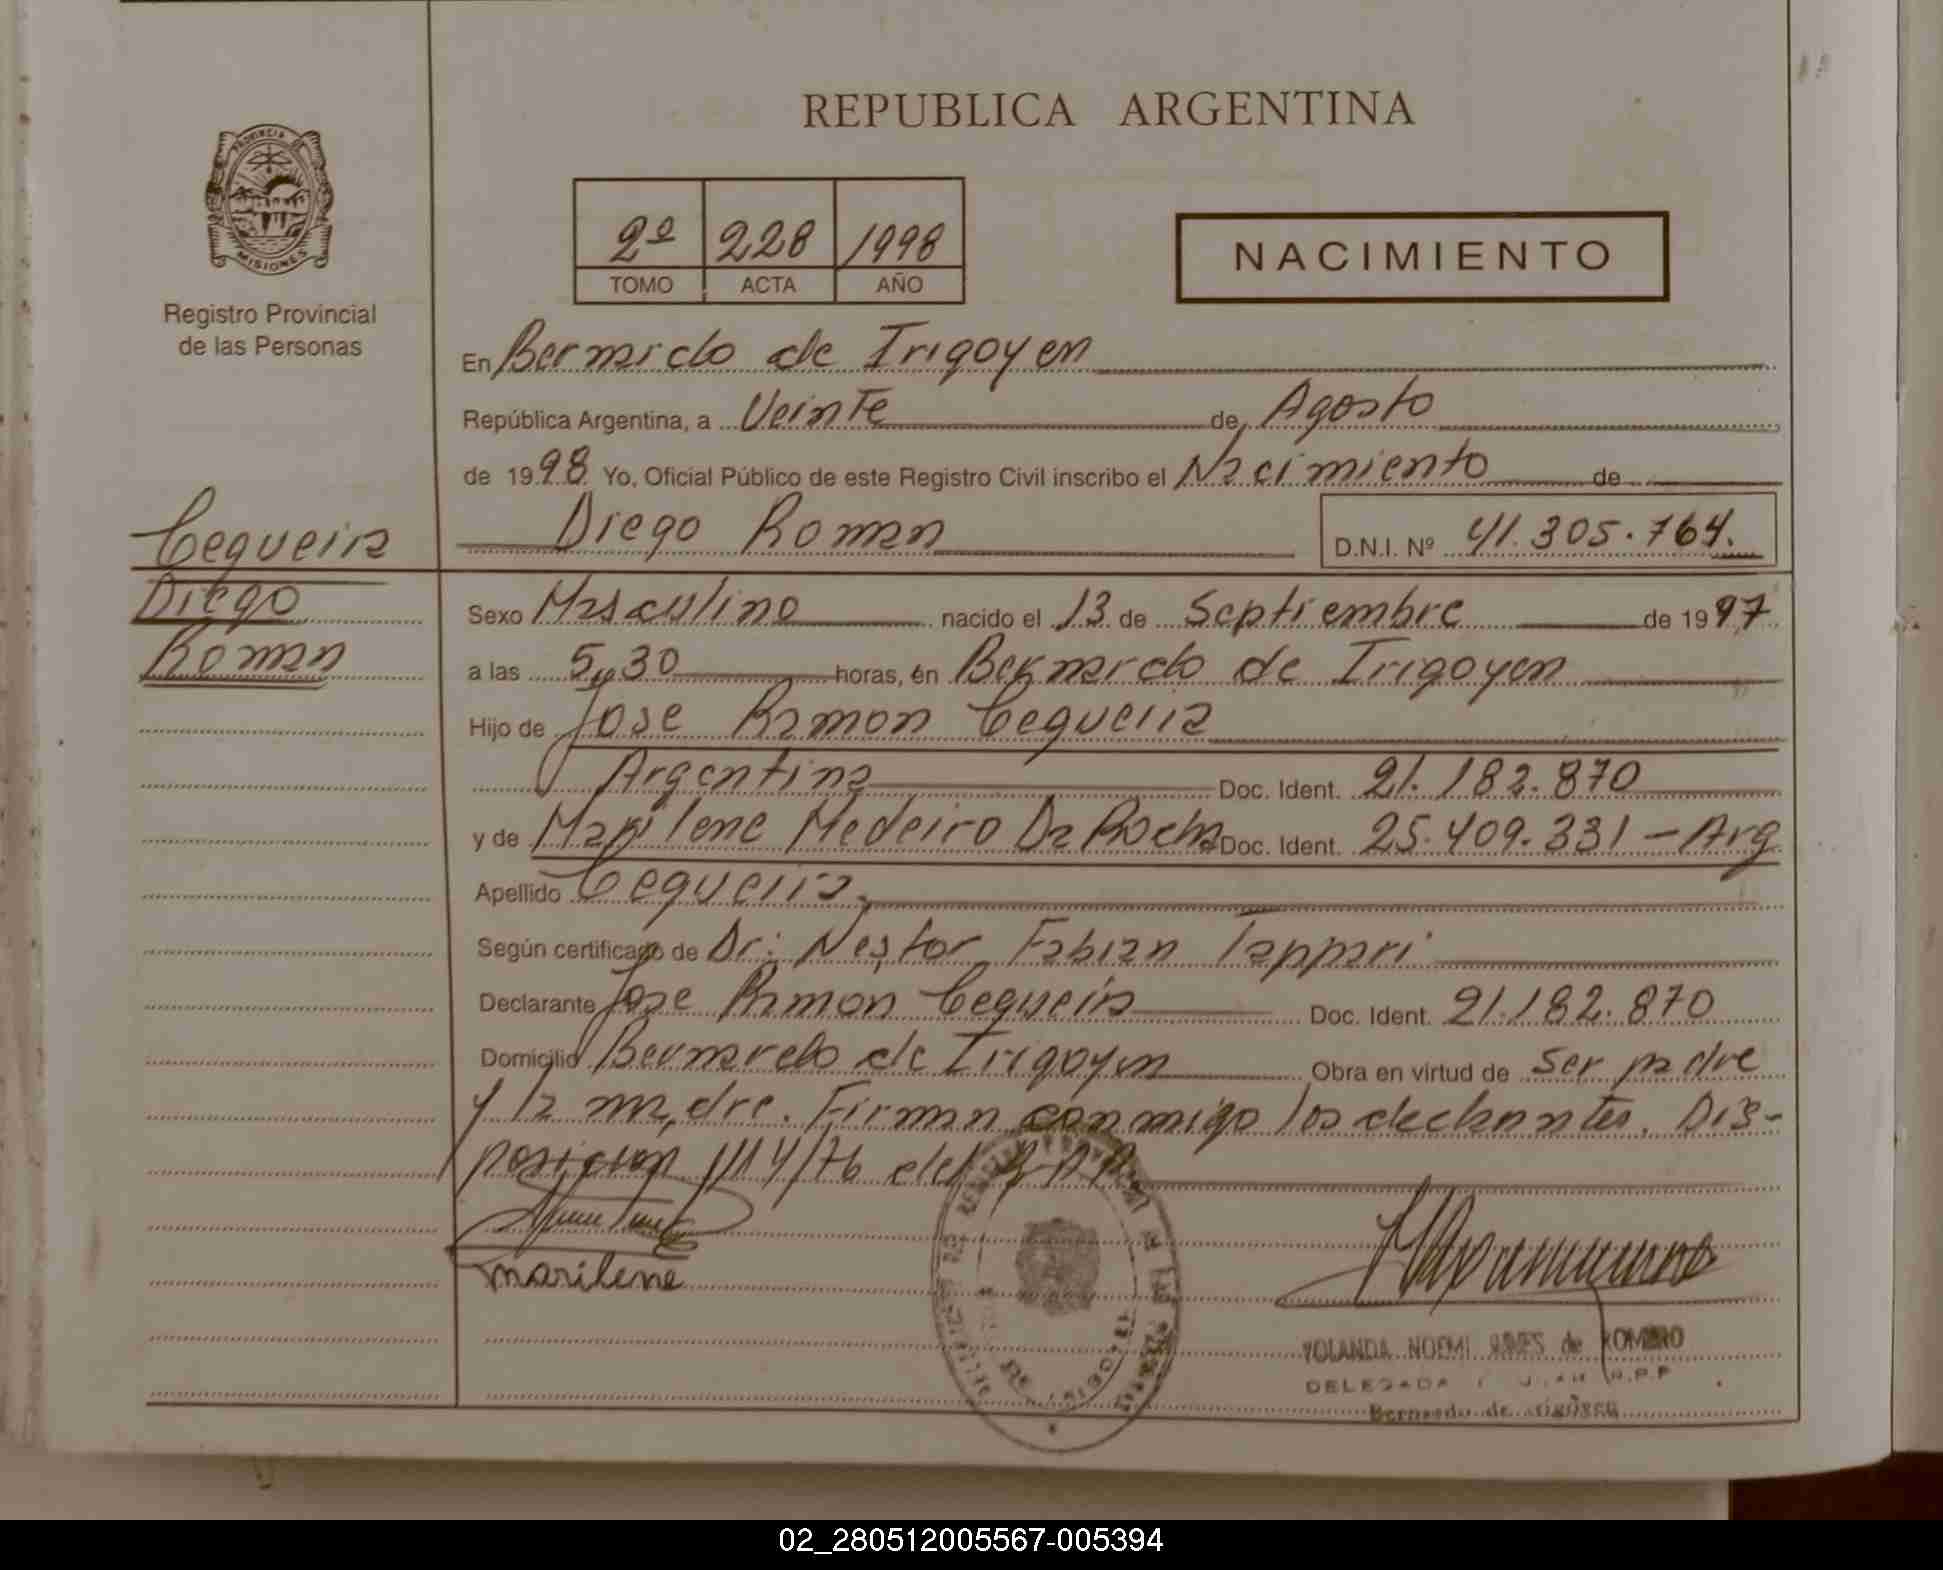 REPUBLICA ARGENTINA
PROVINCIA DE MISIONES
Registro Provincial
de las Personas
2º 228 1998
TOMO ACTA AÑO
NACIMIENTO
En Bernardo de Irigoyen
República Argentina, a Veinte de Agosto
de 1998 Yo, Oficial Público de este Registro Civil inscribo el Nacimiento de
Diego Roman D.N.I. Nº 41.305.764.
Cequeira
Diego
Roman
Sexo Masculino nacido el 13 de Septiembre de 1997
a las 5,30 horas, en Bernardo de Irigoyen
Hijo de Jose Ramon Cequeira
Argentina Doc. Ident. 21.182.870
y de Marilene Medeiro Da Rocha Doc. Ident. 25.409.331 - Arg
Apellido Cequeira
Según certificado de Dr: Nestor Fabian Tappari
Declarante Jose Ramon Cequeira Doc. Ident. 21.182.870
Domicilio Bernardo de Irigoyen Obra en virtud de ser padre
y la madre. Firman conmigo los declarantes. Dis-
posicion 1114/76 del
marilene
YOLANDA NOEMI de ROMERO
DELEGADA R.P.P
Bernardo de Irigoyen
02_280512005567-005394